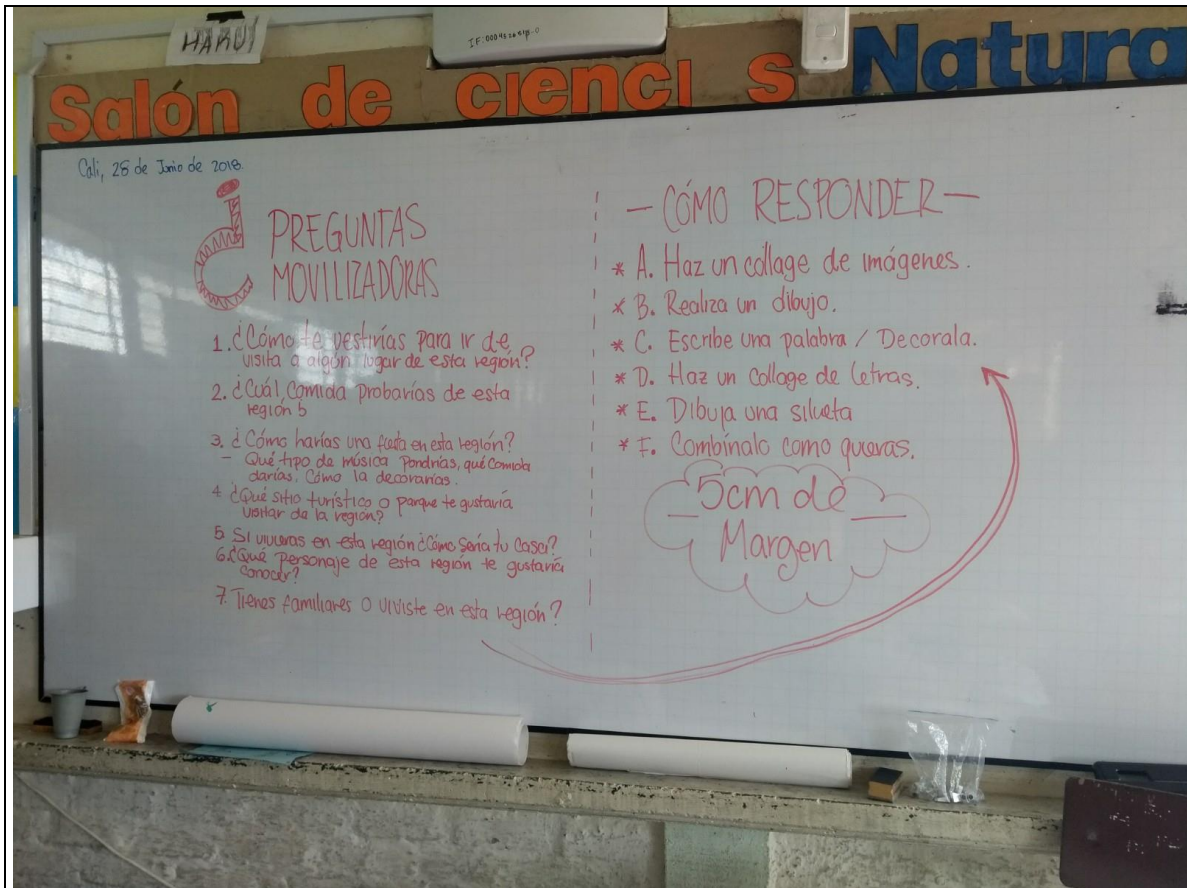 HARVI
Salón de cienci s Natura
Cali, 28 de Junio de 2018.
¿ PREGUNTAS
MOVILIZADORAS
1. ¿Cómo te vestirías para ir de
visita a algún lugar de esta región?
2. ¿Cuál comida probarías de esta
región
3. ¿Cómo harías una fiesta en esta región?
- Qué tipo de música pondrías, qué comida
darías, Cómo la decorarías.
4 ¿Qué sitio turístico o parque te gustaría
visitar de la región?
5 Si vivieras en esta región ¿Cómo sería tu casa?
6. ¿Qué personaje de esta región te gustaría
conocer?
7. Tienes familiares o viviste en esta región?
- CÓMO RESPONDER -
* A. Haz un collage de imágenes.
* B. Realiza un dibujo.
* C. Escribe una palabra / Decorala.
* D. Haz un collage de letras.
* E. Dibuja una silueta
* F. Combínalo como quieras.
5cm de
Margen